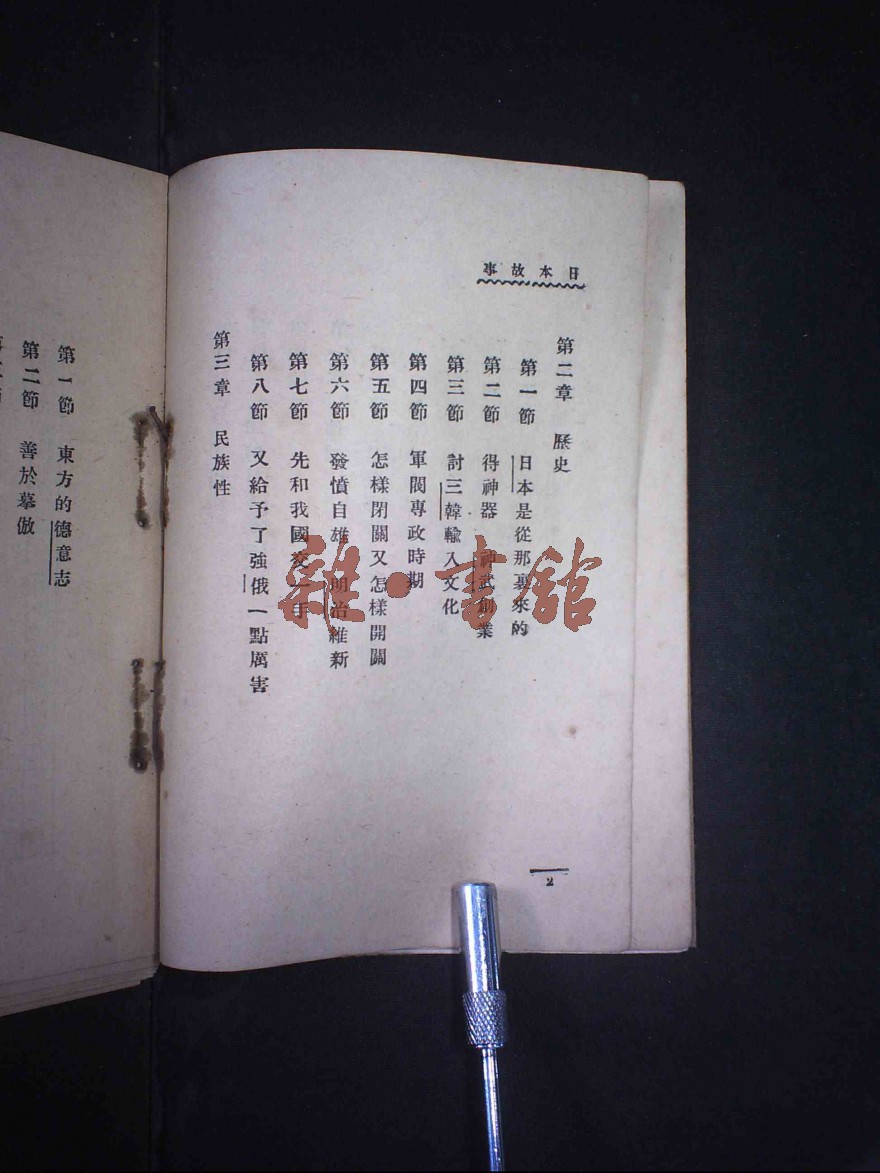 日本故事
第二章 歷史
第一節 日本是從那裏來的
第二節 得神器 神武創業
第三節 討三韓輸入文化
第四節 軍閥專政時期
第五節 怎樣閉關又怎樣開關
第六節 發憤自雄 明治維新
第七節 先和我國交一手
第八節 又給予了強俄一點厲害
第三章 民族性
2
第一節 東方的德意志
第二節 善於摹倣
雜·書舘